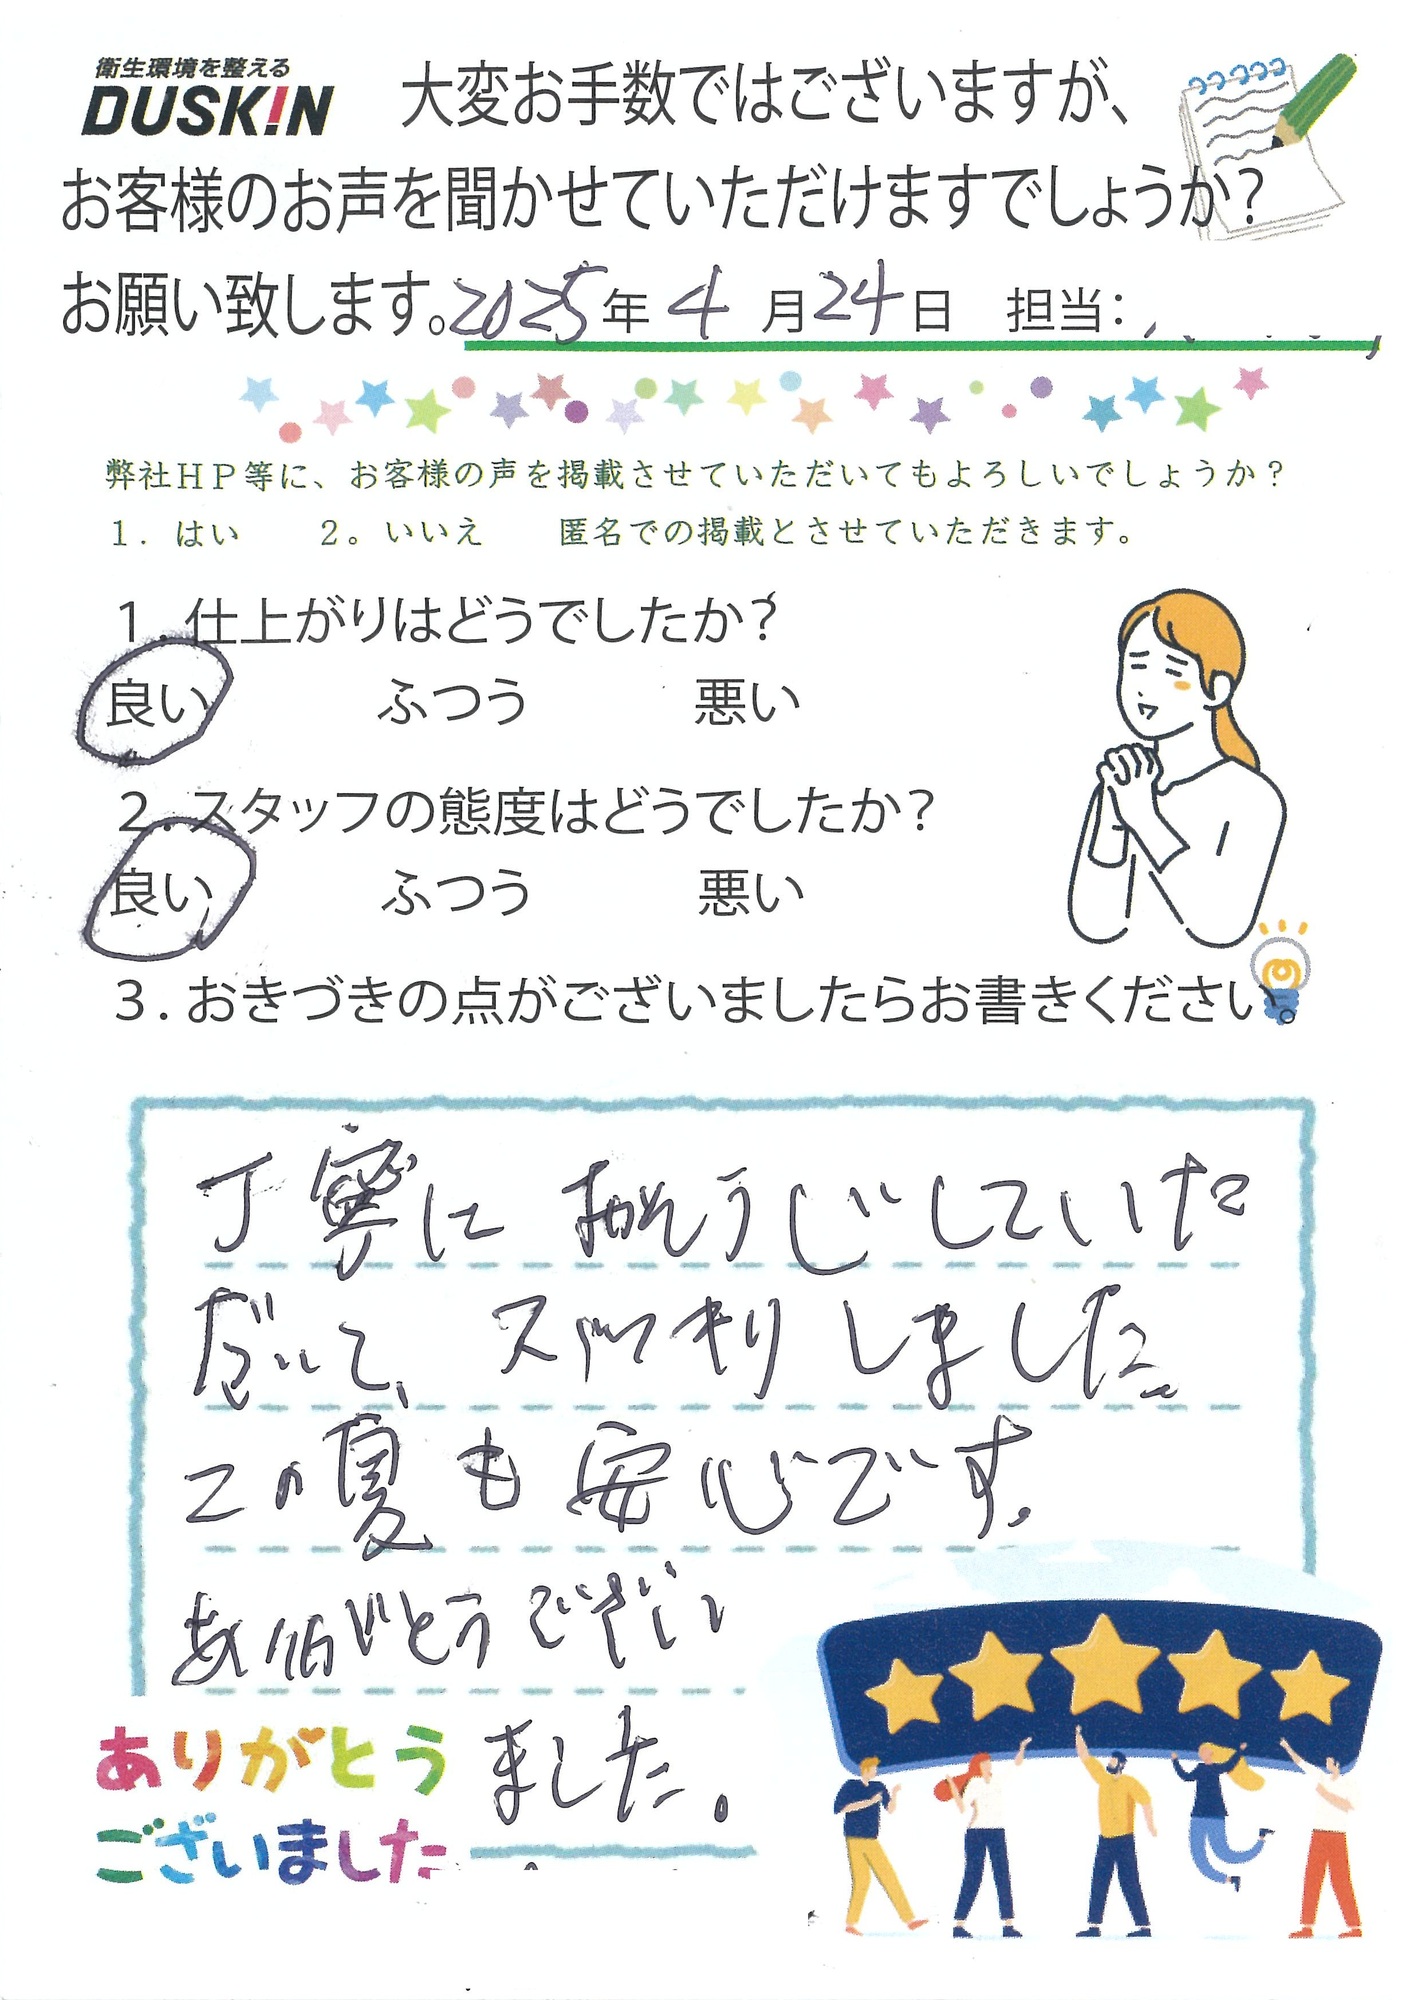 衛生環境を整える
DUSKIN
大変お手数ではございますが、
お客様のお声を聞かせていただけますでしょうか?
お願い致します。2025年4月24日 担当:
弊社HP等に、お客様の声を掲載させていただいてもよろしいでしょうか?
1. はい 2。いいえ 匿名での掲載とさせていただきます。
1. 仕上がりはどうでしたか?
良い ふつう 悪い
2. スタッフの態度はどうでしたか?
良い ふつう 悪い
3. おきづきの点がございましたらお書きください。
丁寧に おそうじしていた
だいて、スッキリしました。
この夏も安心です。
ありがとうござい
ました。
ありがとう
ございました